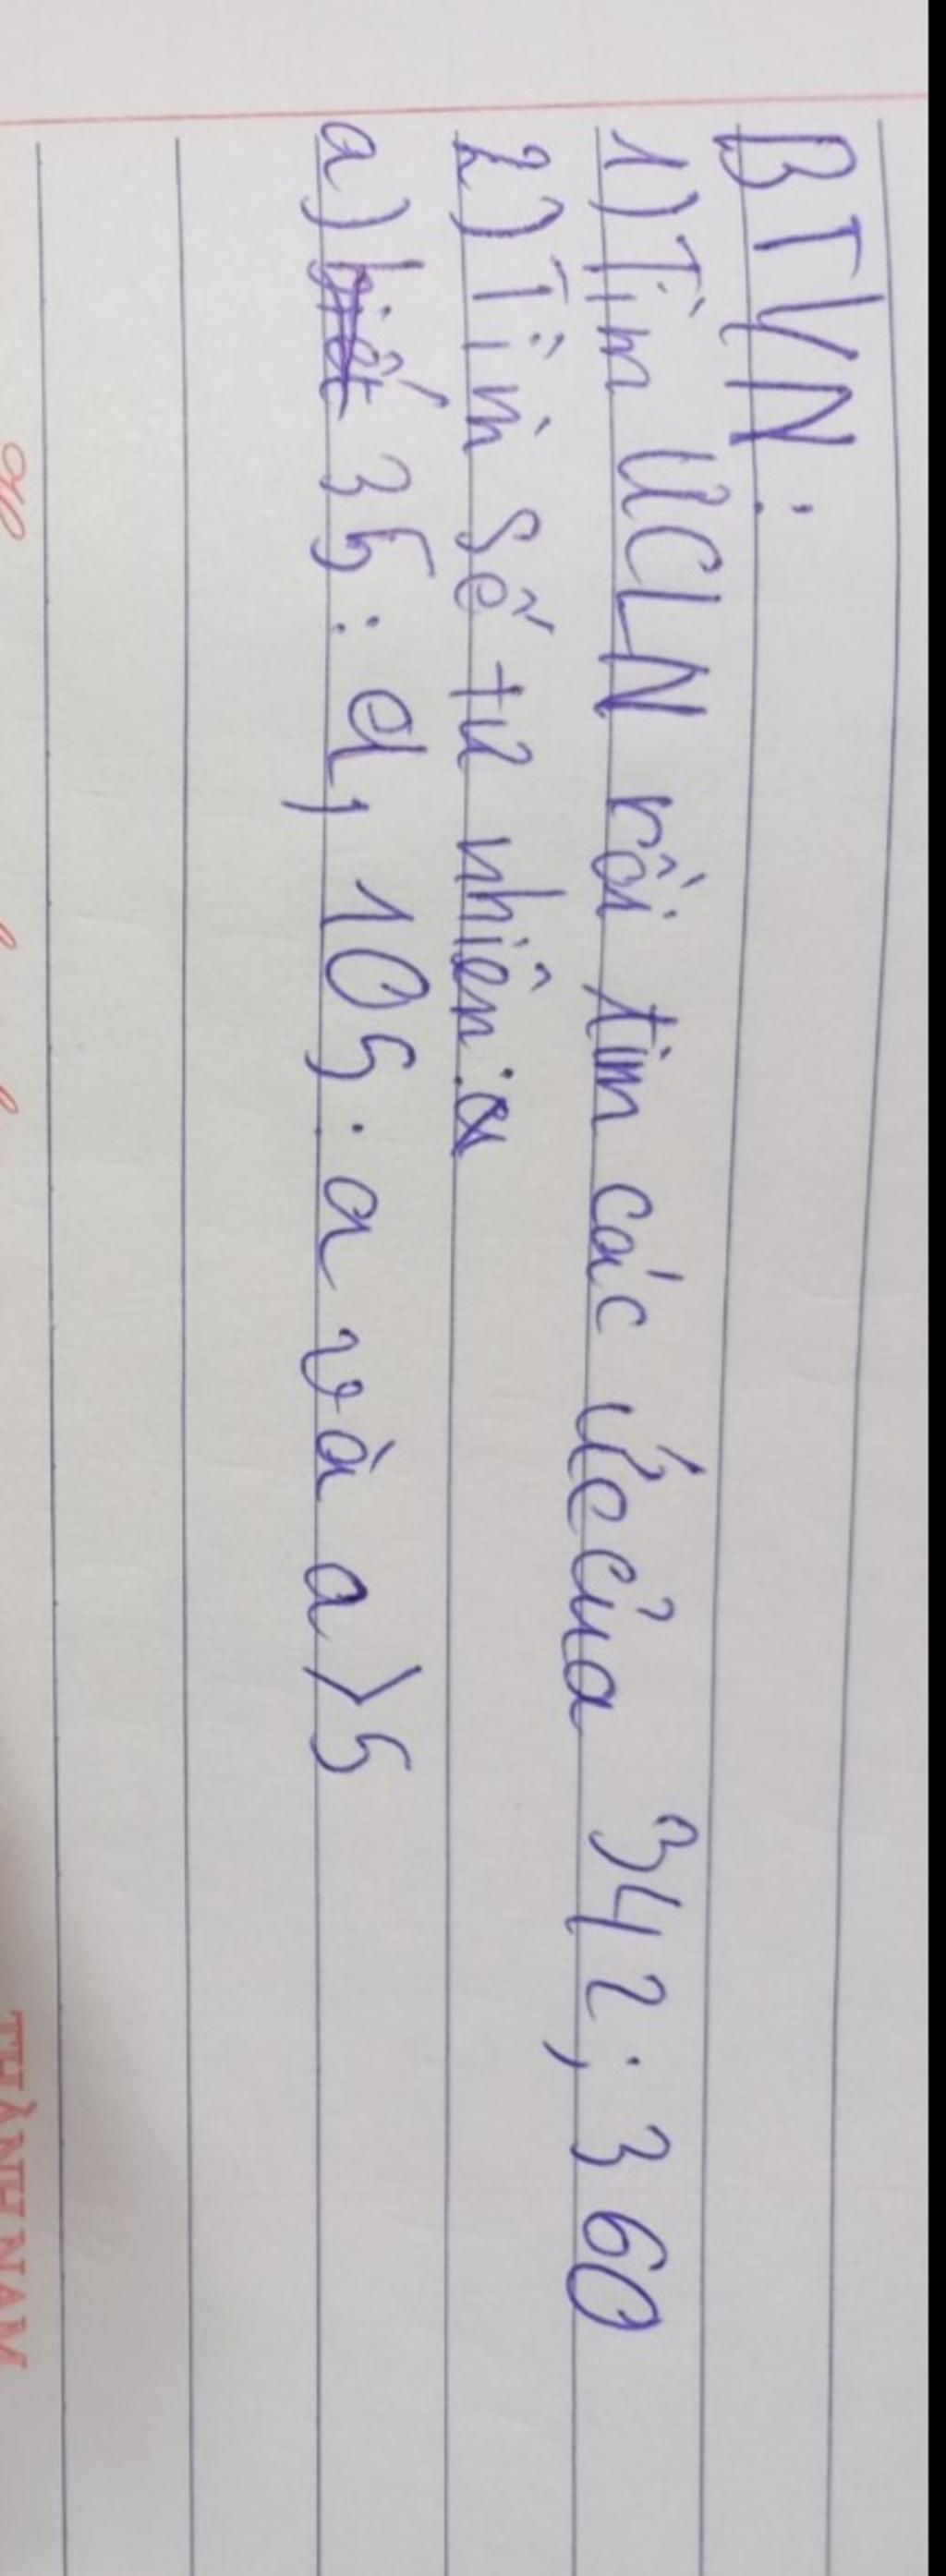 BTVN:
1) Tìm ƯCLN rồi tìm các ước của 342; 360
2) Tìm số tư nhiên a
a) 35 : a, 105 : a và a > 5
THÀNH NAM